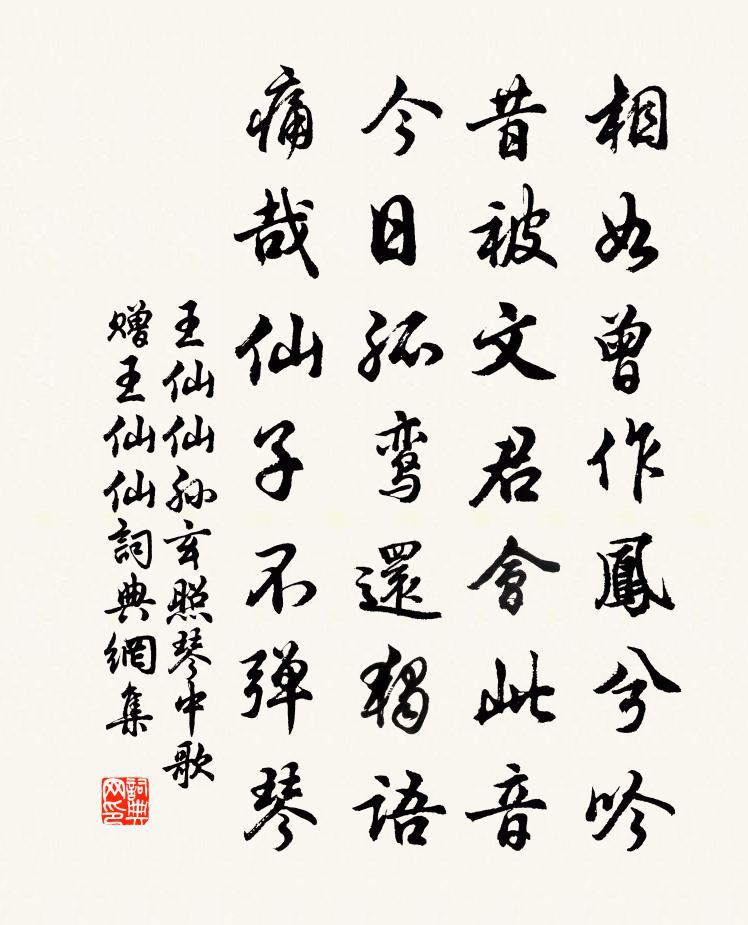 相如曾作鳳兮吟
昔被文君會此音
今日孤鸞還獨語
痛哉仙子不弹琴
王仙仙孙玄照琴中歌
赠王仙仙詞典網集
詞典网印